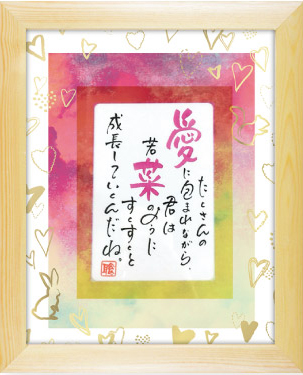 たくさんの
愛に包まれながら、
君は
若菜のように
すくすくと
成長していくんだね。